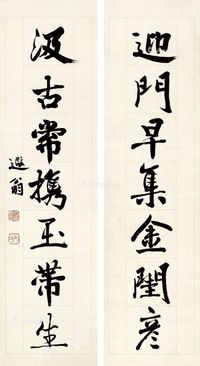 迎門早集金閨彦
汲古常攜玉带生
遐翁